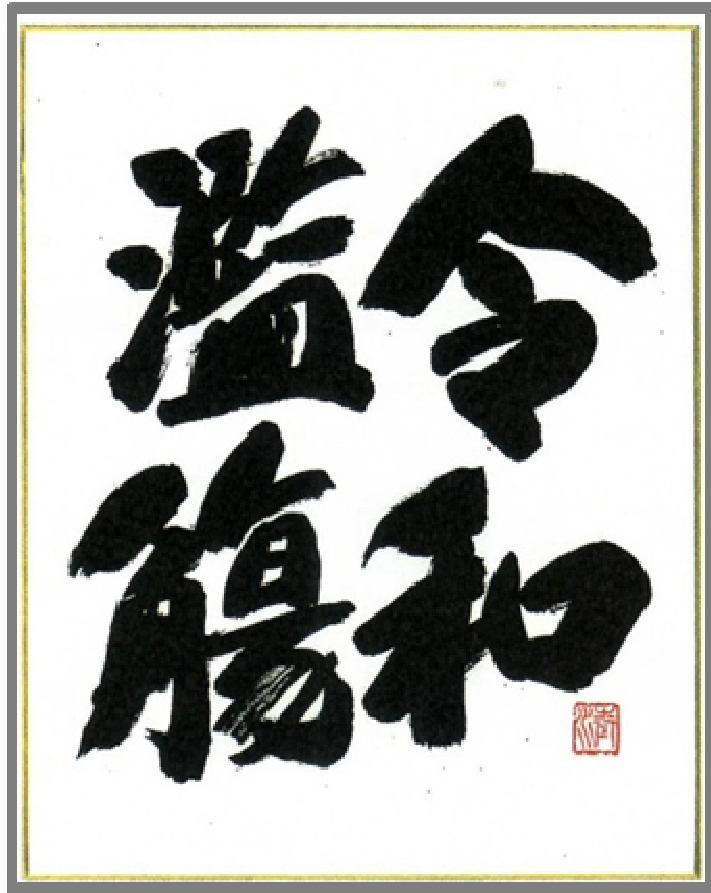 令和
濫觴